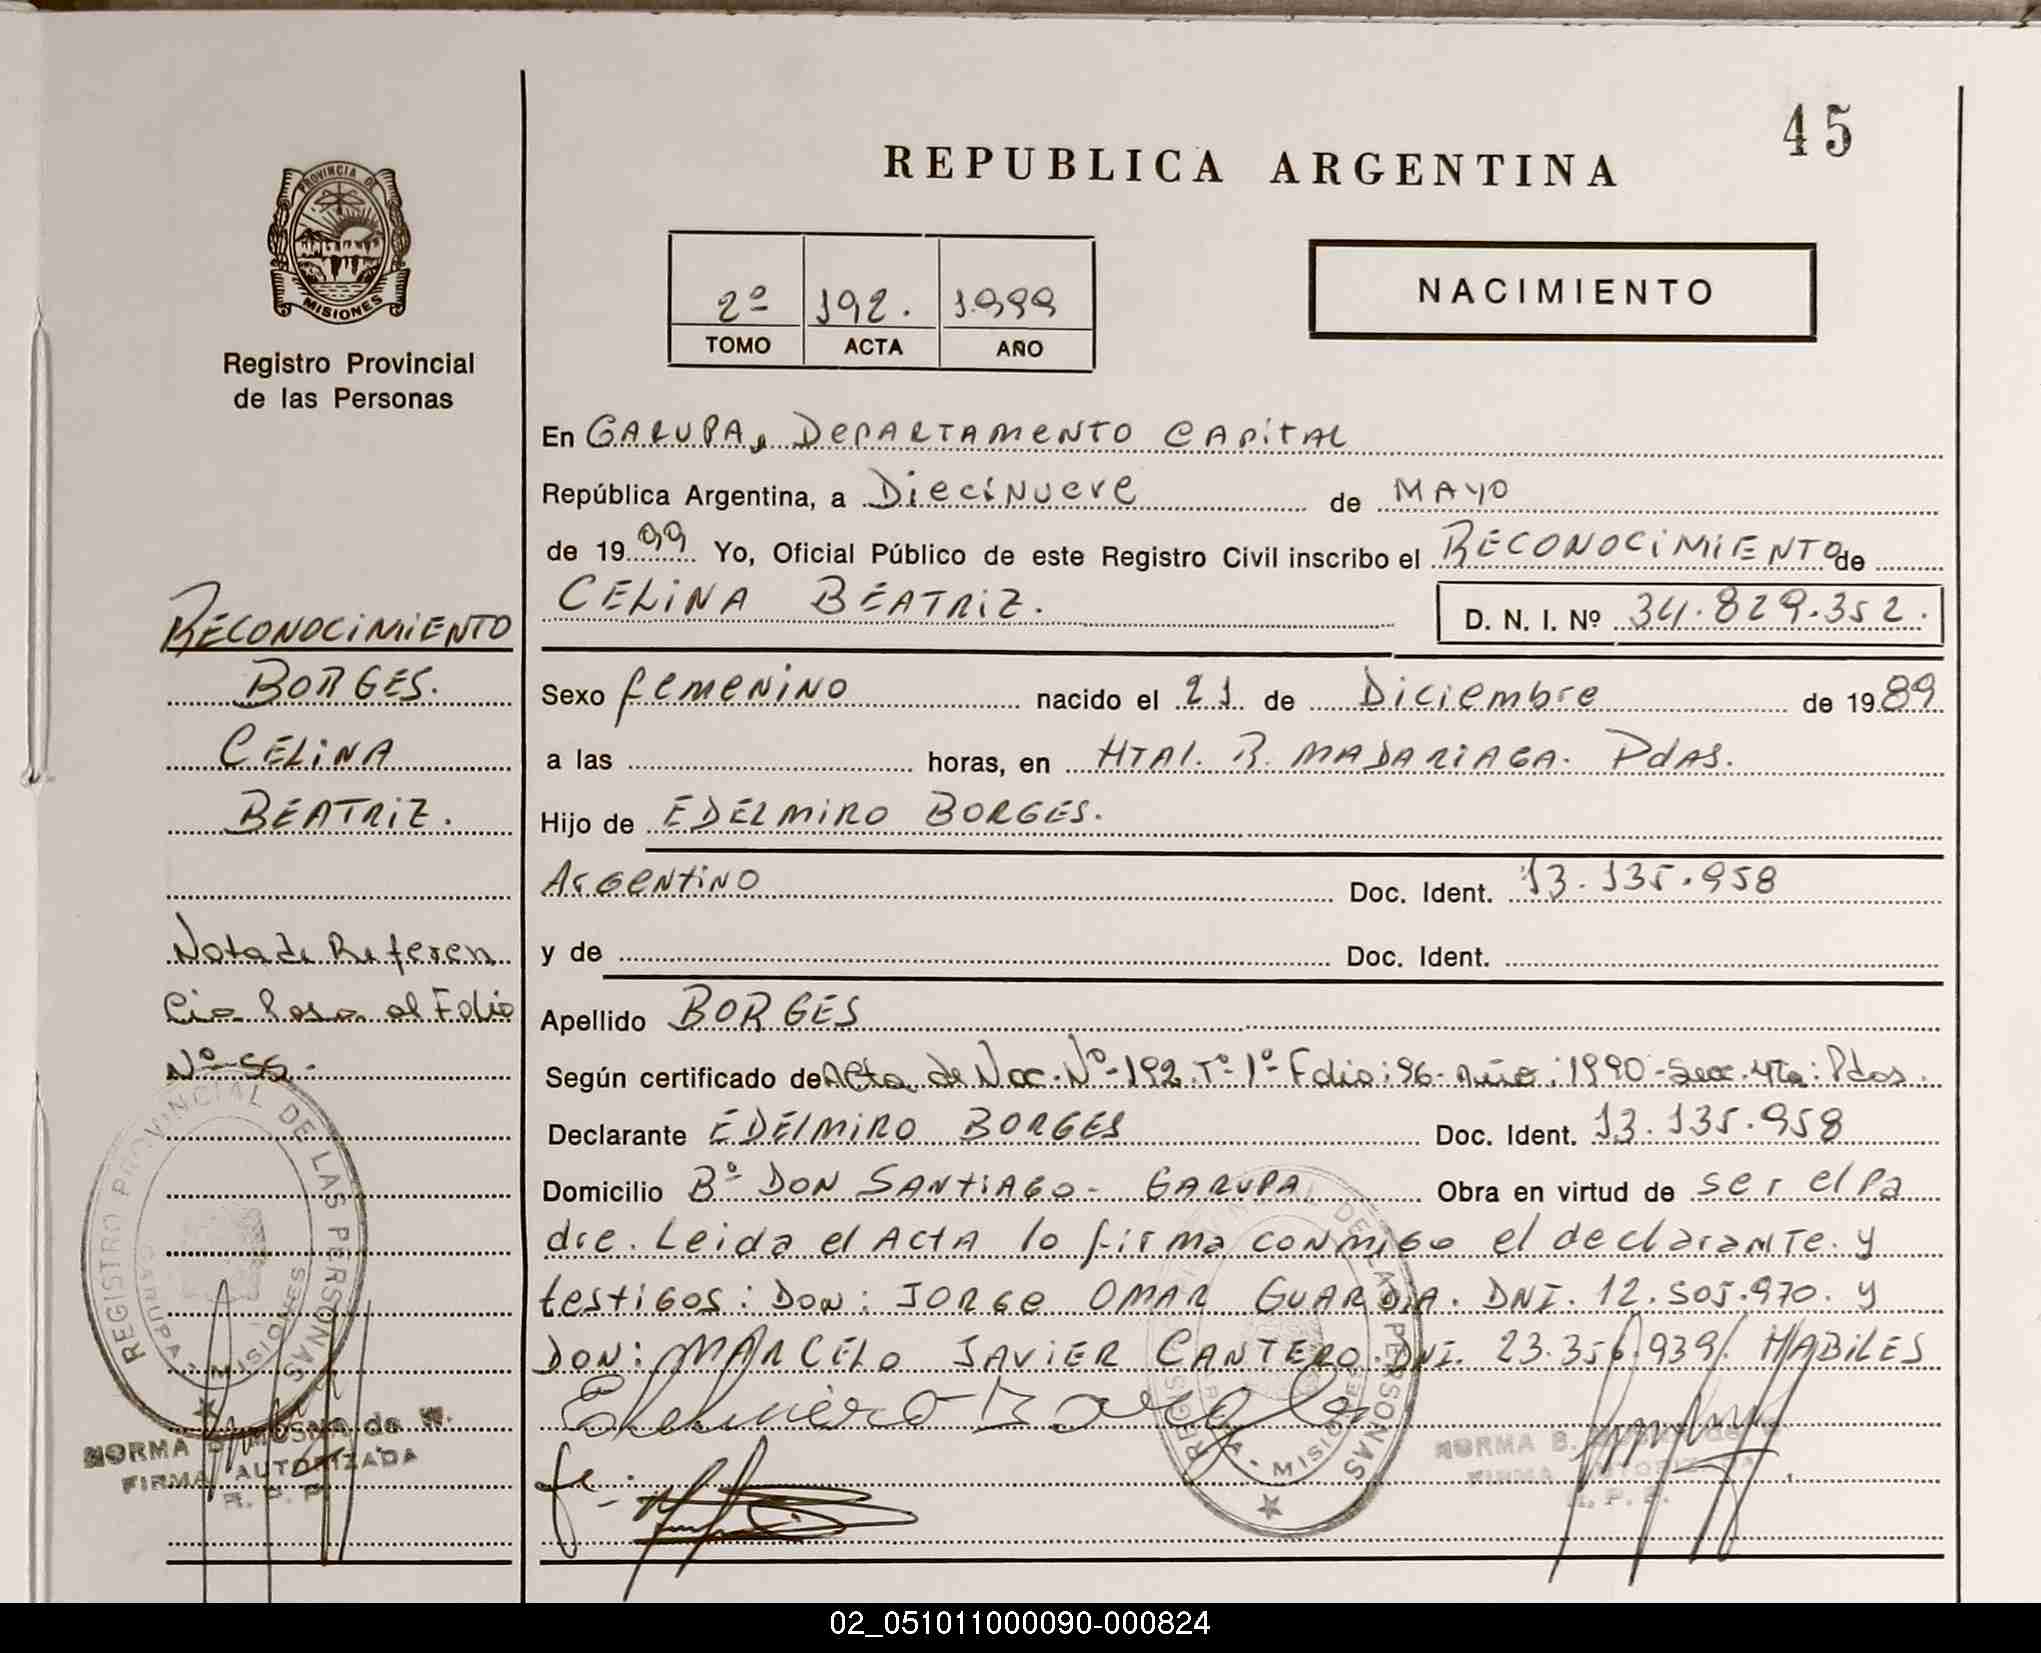 45
REPUBLICA ARGENTINA
PROVINCIA DE
MISIONES
Registro Provincial
de las Personas
2º 192. 1.999
TOMO ACTA AÑO
NACIMIENTO
En GARUPA, DEPARTAMENTO CAPITAL
República Argentina, a Diecinueve de MAYO
de 1999 Yo, Oficial Público de este Registro Civil inscribo el RECONOCIMIENTO de
CELINA BEATRIZ.
D. N. I. Nº 34.829.352.
RECONOCIMIENTO
BORGES.
CELINA
BEATRIZ.
Nota de Referen
cia Pasa al Folio
Nº
Sexo femenino nacido el 21 de Diciembre de 1989
a las horas, en HTAL. R. MADARIAGA. PdAS.
Hijo de EDELMIRO BORGES.
ARGENTINO Doc. Ident. 13.135.958
y de Doc. Ident.
Apellido BORGES
Según certificado de Acta de Nac. Nº-192. Tº 1º Folio: 96- Año: 1990- Secc. 4ta: Pdas.
Declarante EDELMIRO BORGES Doc. Ident. 13.135.958
Domicilio Bº DON SANTIAGO- GARUPA Obra en virtud de ser el Pa
dre. Leida el ACTA lo firma conmigo el declarante. y
testigos: Don: JORGE OMAR GUARDIA. DNI. 12.505.970. y
DON: MARCELO JAVIER CANTERO. DNI. 23.356.939. HABILES
Edelmiro Borges
REGISTRO PROVINCIAL DE LAS PERSONAS
GARUPA - MISIONES
NORMA B. de
FIRMA AUTORIZADA
R. P. P.
fe.
REGISTRO PROVINCIAL DE LAS PERSONAS
MISIONES
NORMA B.
FIRMA AUTORIZADA
R. P. P.
02_051011000090-000824